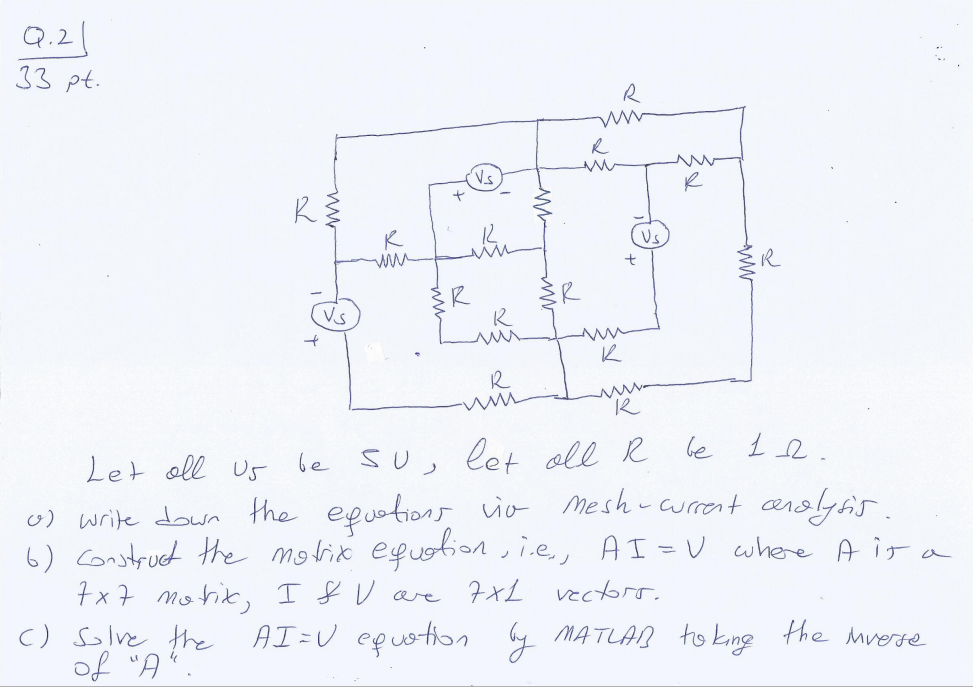 Q.2
33 pt.
R
R
R
Vs
+ -
R
R
R
-
Vs
+
R
-
Vs
+
R
R
R
R
R
R
Let all Vs be 5V, let all R be 1 Ω.
a) write down the equations via mesh-current analysis.
b) Construct the matrix equation, i.e., AI = V where A is a
7x7 matrix, I & V are 7x1 vectors.
c) Solve the AI=V equation by MATLAB taking the inverse
of "A".